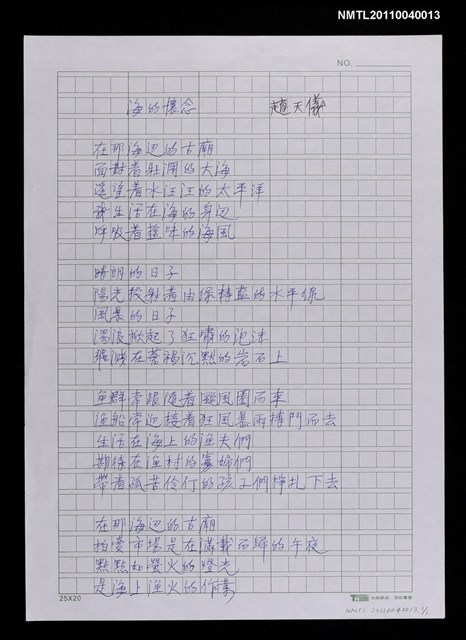 NMTL20110040013
NO.
海的懷念 趙天儀
在那海边的古廟
面對着壯濶的大海
遙望着水汪汪的太平洋
我生活在海的身边
呼吸着鹽味的海風
晴朗的日子
陽光投射着由綠轉藍的水平線
風暴的日子
濤浪掀起了狂嘯的泡沫
飛濺在黃褐沉默的岩石上
魚群常跟随着颱風圈而來
漁船常迎接着狂風暴雨搏鬥而去
生活在海上的漁夫們
期待在漁村的寡婦們
帶着孤苦伶仃的孩子們掙扎下去
在那海边的古廟
拍賣市場是在滿載而歸的午夜
點點如螢火的燈光
是海上漁火的作業
25X20
NMTL 20110040013. 1/1